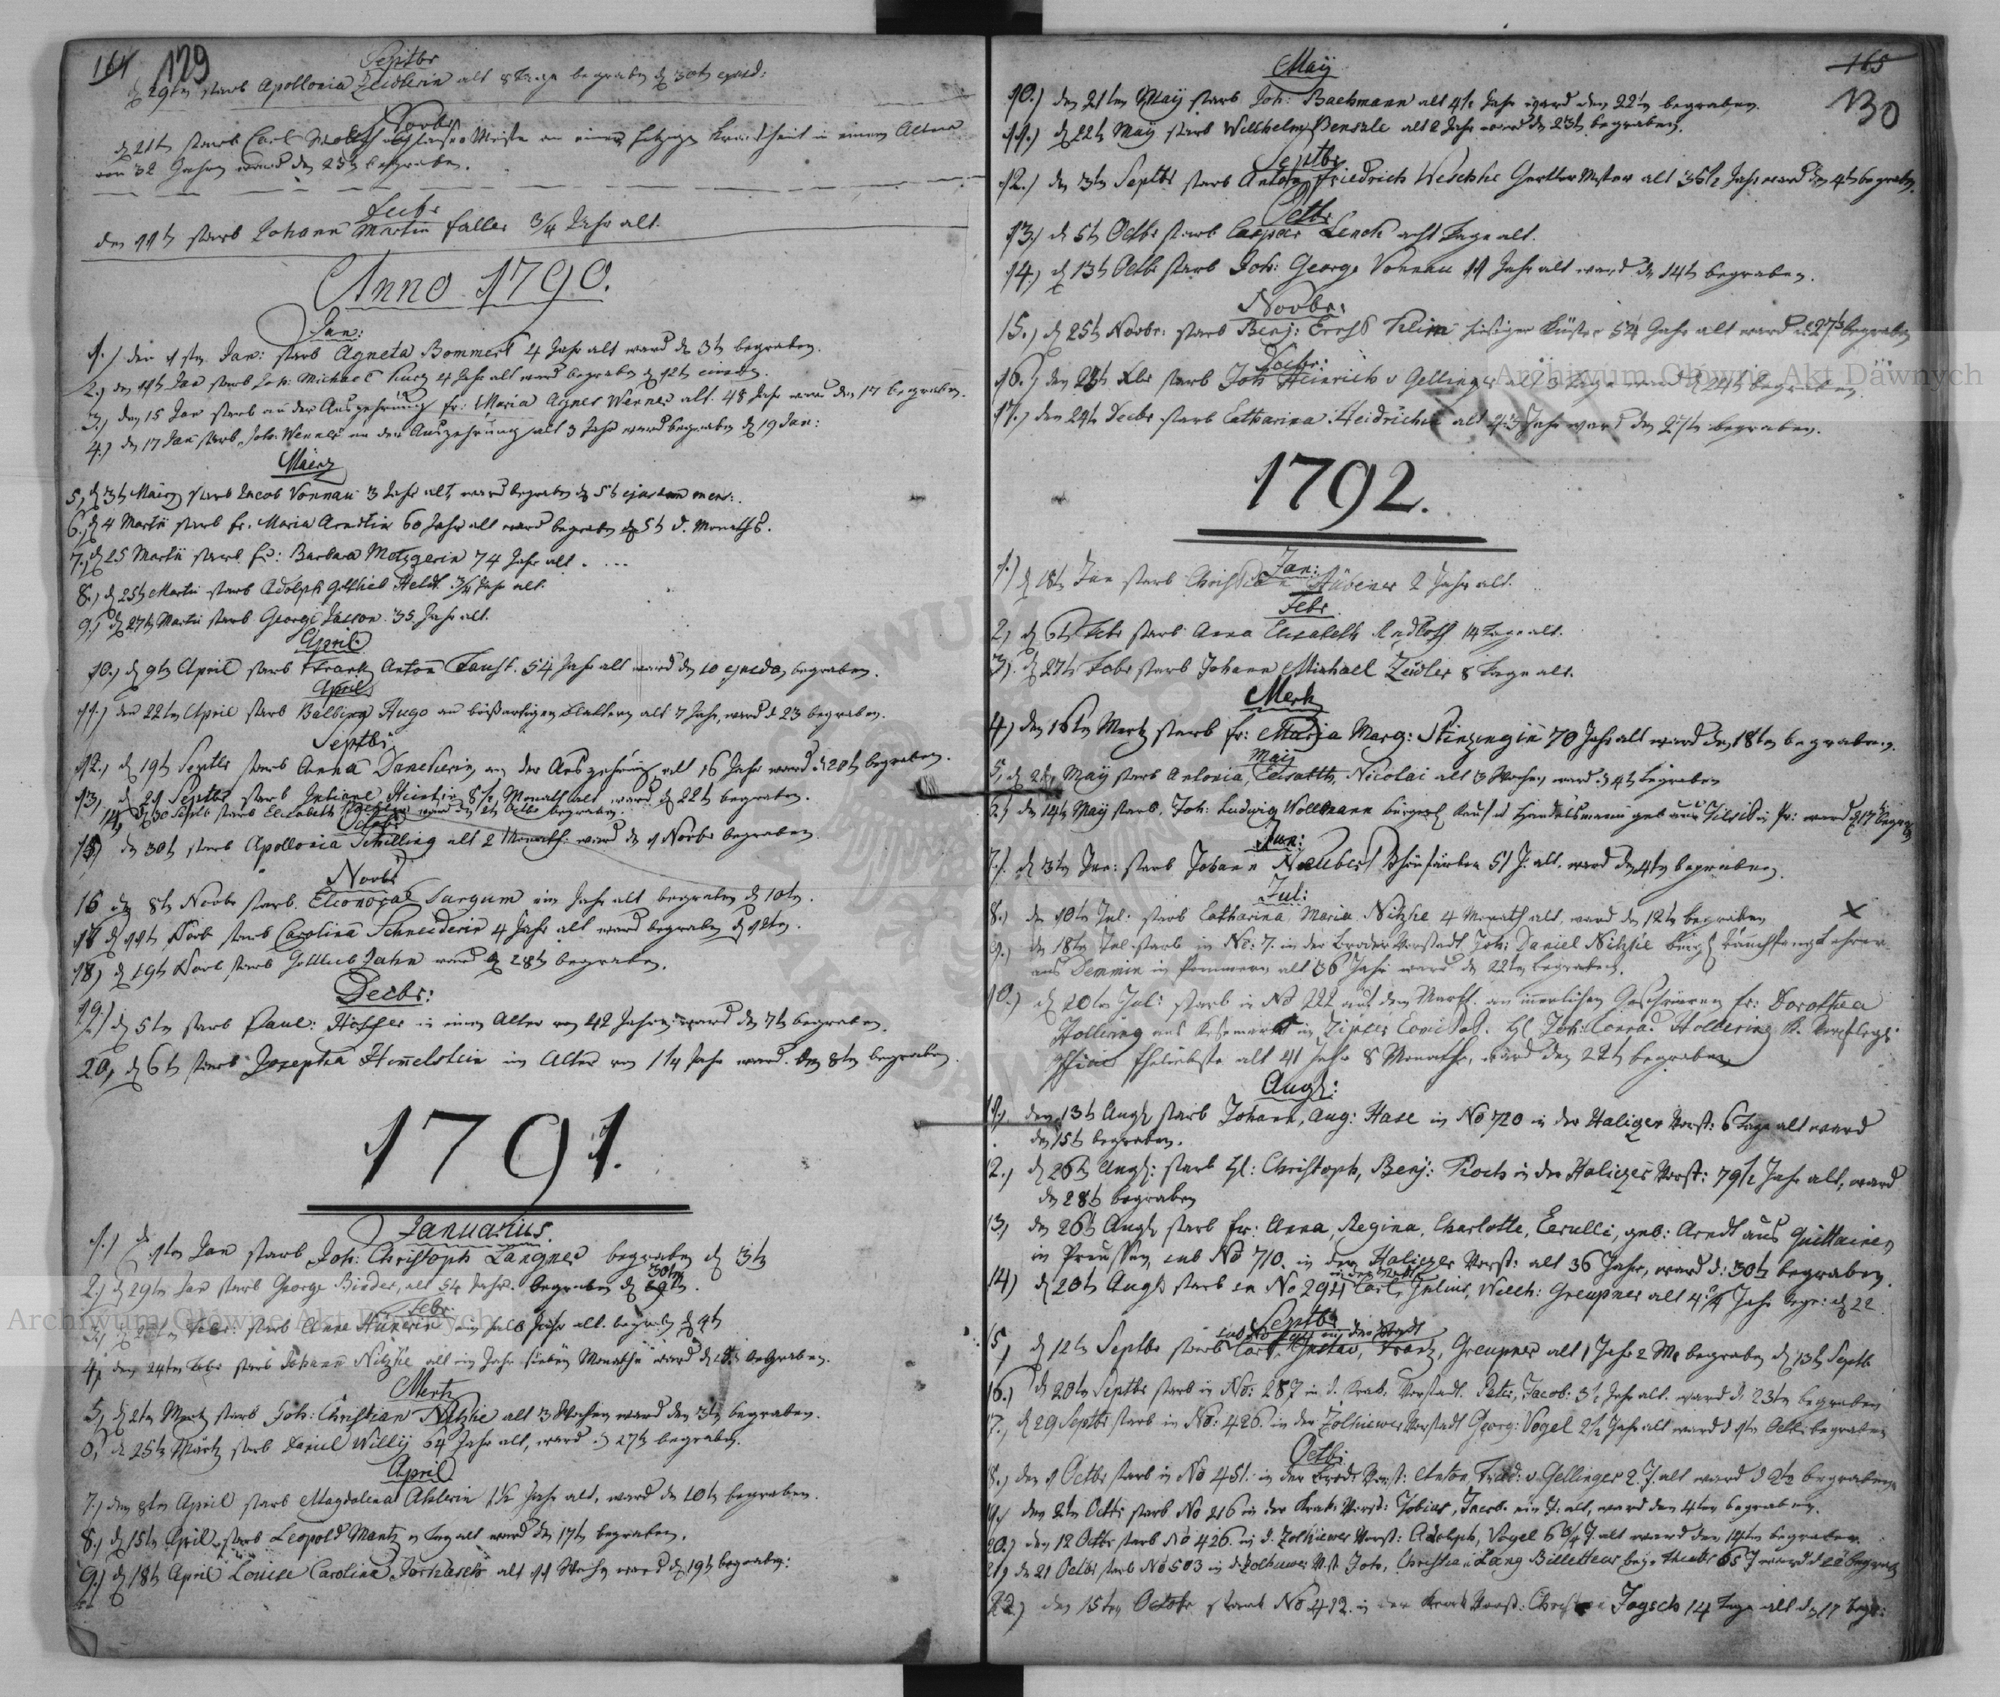 164 129
Septbr
d 29ten starb Apollonia Zeidlerin alt 8 Tage begraben d 30ten ejusd:
Novbr
d 21tn starb Carl an einer hitzigen Krankheit in einem Alter
von 32 Jahren ward den 23tn begraben.
Decbr
den 11tn starb Johann Martin Faller 3/4 Jahr alt.
Anno 1790.
Jan:
1.) den 1sten Jan: starb Agneta Bommert 4 Jahr alt ward d 3tn begraben.
2.) den 11tn Jan starb Joh: Michael Kurz 4 Jahr alt ward begraben d 12tn
3.) den 15 Jan starb an der Auszehrung fr: Maria Agnes Wenner alt 48 Jahr ward den 17 begraben.
4.) den 17 Jan starb Joh: Wenner an der Auszehrung alt 3 Jahr ward begraben d 19 Jan:
Maerz
5.) d 3tn Maerz starb Jacob Vonnau 3 Jahr alt, ward begraben d 5tn ejusdem mens:.
6.) d 4 Martii starb fr. Maria Arndtin 60 Jahr alt ward begraben d 5tn d. Monaths.
7.) d 25 Martii starb fr: Barbara Metzgerin 74 Jahr alt. ...
8.) d 25tn Martii starb Adolph Gottlieb Heldt 3/4 Jahr alt.
9.) d 27tn Martii starb George Jacson 35 Jahr alt.
April.
10.) d 9tn April starb Frantz Anton Faust. 54 Jahr alt ward den 10 begraben.
April
11.) den 22ten April starb Balbina Hugo an bösartigen Blattern alt 7 Jahr, ward d 23 begraben.
Septbr
12.) d 19tn Septbr starb Anna Danekerin an der Auszehrung alt 16 Jahr ward d 20tn begraben.
13.) d 21 Septbr starb Juliane 8 1/2 Monath alt ward d 22tn begraben.
14.) d 30 Septb starb Elisabeth ward den 1tn Octbr begraben.
Octobr
15.) den 30tn starb Apollonia Schilling alt 2 Monath: ward den 1 Novbr begraben
Novbr
16 den 8tn Novbr starb. Eleonora Surgum ein Jahr alt begraben d 10ten.
17 d 11tn Novb starb Carolina Schneiderin 4 Jahr alt ward begraben d 12ten.
18) d 19tn Novb starb Gottlieb Jahn ward d 28tn begraben.
Decbr:
19.) d 5ten starb Paul: Höffer in einem Alter von 42 Jahren: ward den 7tn begraben.
20.) d 6tn starb Josepha Himelstein im Alter von 1 1/4 Jahr ward. den 8ten begraben.
1791.
Januarius.
1.) d 1ten Jan starb Joh: Christoph Langner begraben d 3tn
2.) d 29ten Jan starb George Bieder, alt 54 Jahr. begraben d 30ten.
Febr:
starb Anna ein halb Jahr alt. begrab d 4tn
4.) den 24ten Febr starb Johann Nitzsie alt ein Jahr sieben Monathe ward d begraben.
Mertz
5.) d 2ten Mertz starb Joh: Christian Nitzsie alt 3 Wochen ward den 3ten begraben.
6.) de 25tn Märtz starb Daniel Willÿ 64 Jahr alt, ward d 27tn begraben.
April
7.) den 8ten April starb Magdalena Ahlerin 1 1/2 Jahr alt, ward den 10tn begraben.
8.) d 15ten April starb Leopold Mantz Tag alt ward den 17tn begraben.
9.) d 18tn April Louise Carolina Jorkasch alt 11 Wochn ward d 19tn begraben:
165
130
Maÿ
10.) den 21ten Maÿ starb Joh: Bachmann alt 4 1/2 Jahr ward den 22ten begraben.
11.) d 22tn Maÿ starb Willhelm Benzele alt 2 Jahr ward d 23tn begraben.
Septbr
12.) den 3tn Septbr starb Anton Friedrich Weschke Gerber Meister alt 36 1/2 Jahr ward den 4tn begraben.
Octbr
13.) d 5tn Octbr starb Caspar Lenck acht Tage alt.
14.) d 13tn Octbr starb Joh: George Vonnau 11 Jahr alt ward den 14tn begraben.
Novbr:
15.) d 25tn Novbr: starb Benj: Ernst Klim hiesiger Küster 54 Jahr alt ward d 27tn begraben
Decbr:
16.) den 22tn Xbr starb Joh Heinrich v Gellinger alt 3 Tage ward d 24tn begraben
17.) den 24tn Decbr starb Catharina Heidrichin alt 43 Jahr ward den 27tn begraben.
1792.
Jan:
1.) d 18tn Jan starb Christian Hübener 2 Jahr alt.
Febr
2.) d 6tn Febr starb Anna Elisabeth Rudloff 14 Tage alt.
3). d 27tn Febr starb Johann Michael Zeidler 8 Tage alt.
Mertz
4.) den 16ten Mertz starb fr: Maria Marg: Stinzingin 70 Jahr alt ward den 18ten begraben.
Maÿ
5.) d 2ten Maÿ starb Antonia, Elisabeth, Nicolai alt 3 Wochen ward d 4tn begraben
6.) den 14tn Maÿ starb Joh: Ludwig Wollmann Bürgerl Kauf u Handelsmann geb aus Tilsit in Pr: ward d 17tn begraben
Jun:
7.) d 3tn Jun: starb Johann Neubert Schönfärber 51 J. alt. ward den 4ten begraben.
Jul:
8.) den 10ten Jul: starb Catharina Maria Nitzsie 4 Monath alt. ward den 12ten begraben ×
9.) den 18ten Jul starb in No: 7. in der Broder Vorstadt Joh: Daniel Nitzsie Bürgl Rauchfangkehrer
aus Demmin in Pommern alt 36 Jahr ward d 22ten begraben.
10.) d 20ten Jul: starb in No 222 auf dem Markt an innerlichen Geschwüren fr: Dorothea
Hollering aus Kesmarkt in Zipser Comitat. H Joh: Conrad Hollering K. Verpflegs
Officier Eheliebste alt 41 Jahr 8 Monathe, ward den 22tn begraben
Augs:
11.) den 13tn Augs starb Johann, Aug: Hase in No 720 in der Haliger Vorst: 6 Tage alt ward
den 15tn begraben.
12.) d 26tn Augs: starb H: Christoph, Benj: Koch in der Haliger Vorst: 79 1/2 Jahr alt, ward
den 28tn begraben
13.) den 26tn Augs starb fr: Anna, Regina, Charlotte, Cerulli, geb: Arndt aus Quittainen
in Preussen, sub No 710. in der Haliger Vorst: alt 36 Jahr, ward d: 30tn begraben.
14) d 20tn Augs starb in No 294 in der Stadt Carl, Julius, Wilh: Greupner alt 4 3/4 Jahr begr: d 22
Septbr
15.) d 12tn Septbr starb sub No 294 in der Stadt Carl, Gustav, Frantz, Greupner alt 1 Jahr 2 Mo begraben d 13tn Septb
16.) d 20ten Septbr starb in No: 287 in d. Krak. Vorstadt. Peter, Jacob: 3 1/2 Jahr alt. ward d. 23ten begraben
17.) d 29 Septbr starb in No: 426 in der Zolkiewer Vorstadt Georg: Vogel 2 1/2 Jahr alt ward d 1ten Octb begraben
Octbr
18.) den 1 Octbr starb in No 451. in der Brodr Vorst: Anton Fried: v. Gellinger 2 J. alt ward d 2tn begraben.
19.) den 2ten Octbr starb No 216 in der Krak: Vorst: Tobias, Jacob ein J: alt, ward den 4ten begraben.
20.) den 12 Octbr starb No 426. in d. Zolkiewer Vorst: Adolph, Vogel 6 3/4 J. alt ward den 14ten begraben.
21.) den 21 Octbr starb No 503 in d Zolkiewer Vst Joh, Christian Lang Billetteur beÿm Theatr 65 J ward d 22 begraben
22.) den 15ten Octobr starb No 412. in der Krak Vorst: Christ Jogsch 14 Tage alt d 17 begr:
Archiwum Główne Akt Dawnych
Archiwum Główne Akt Dawnych